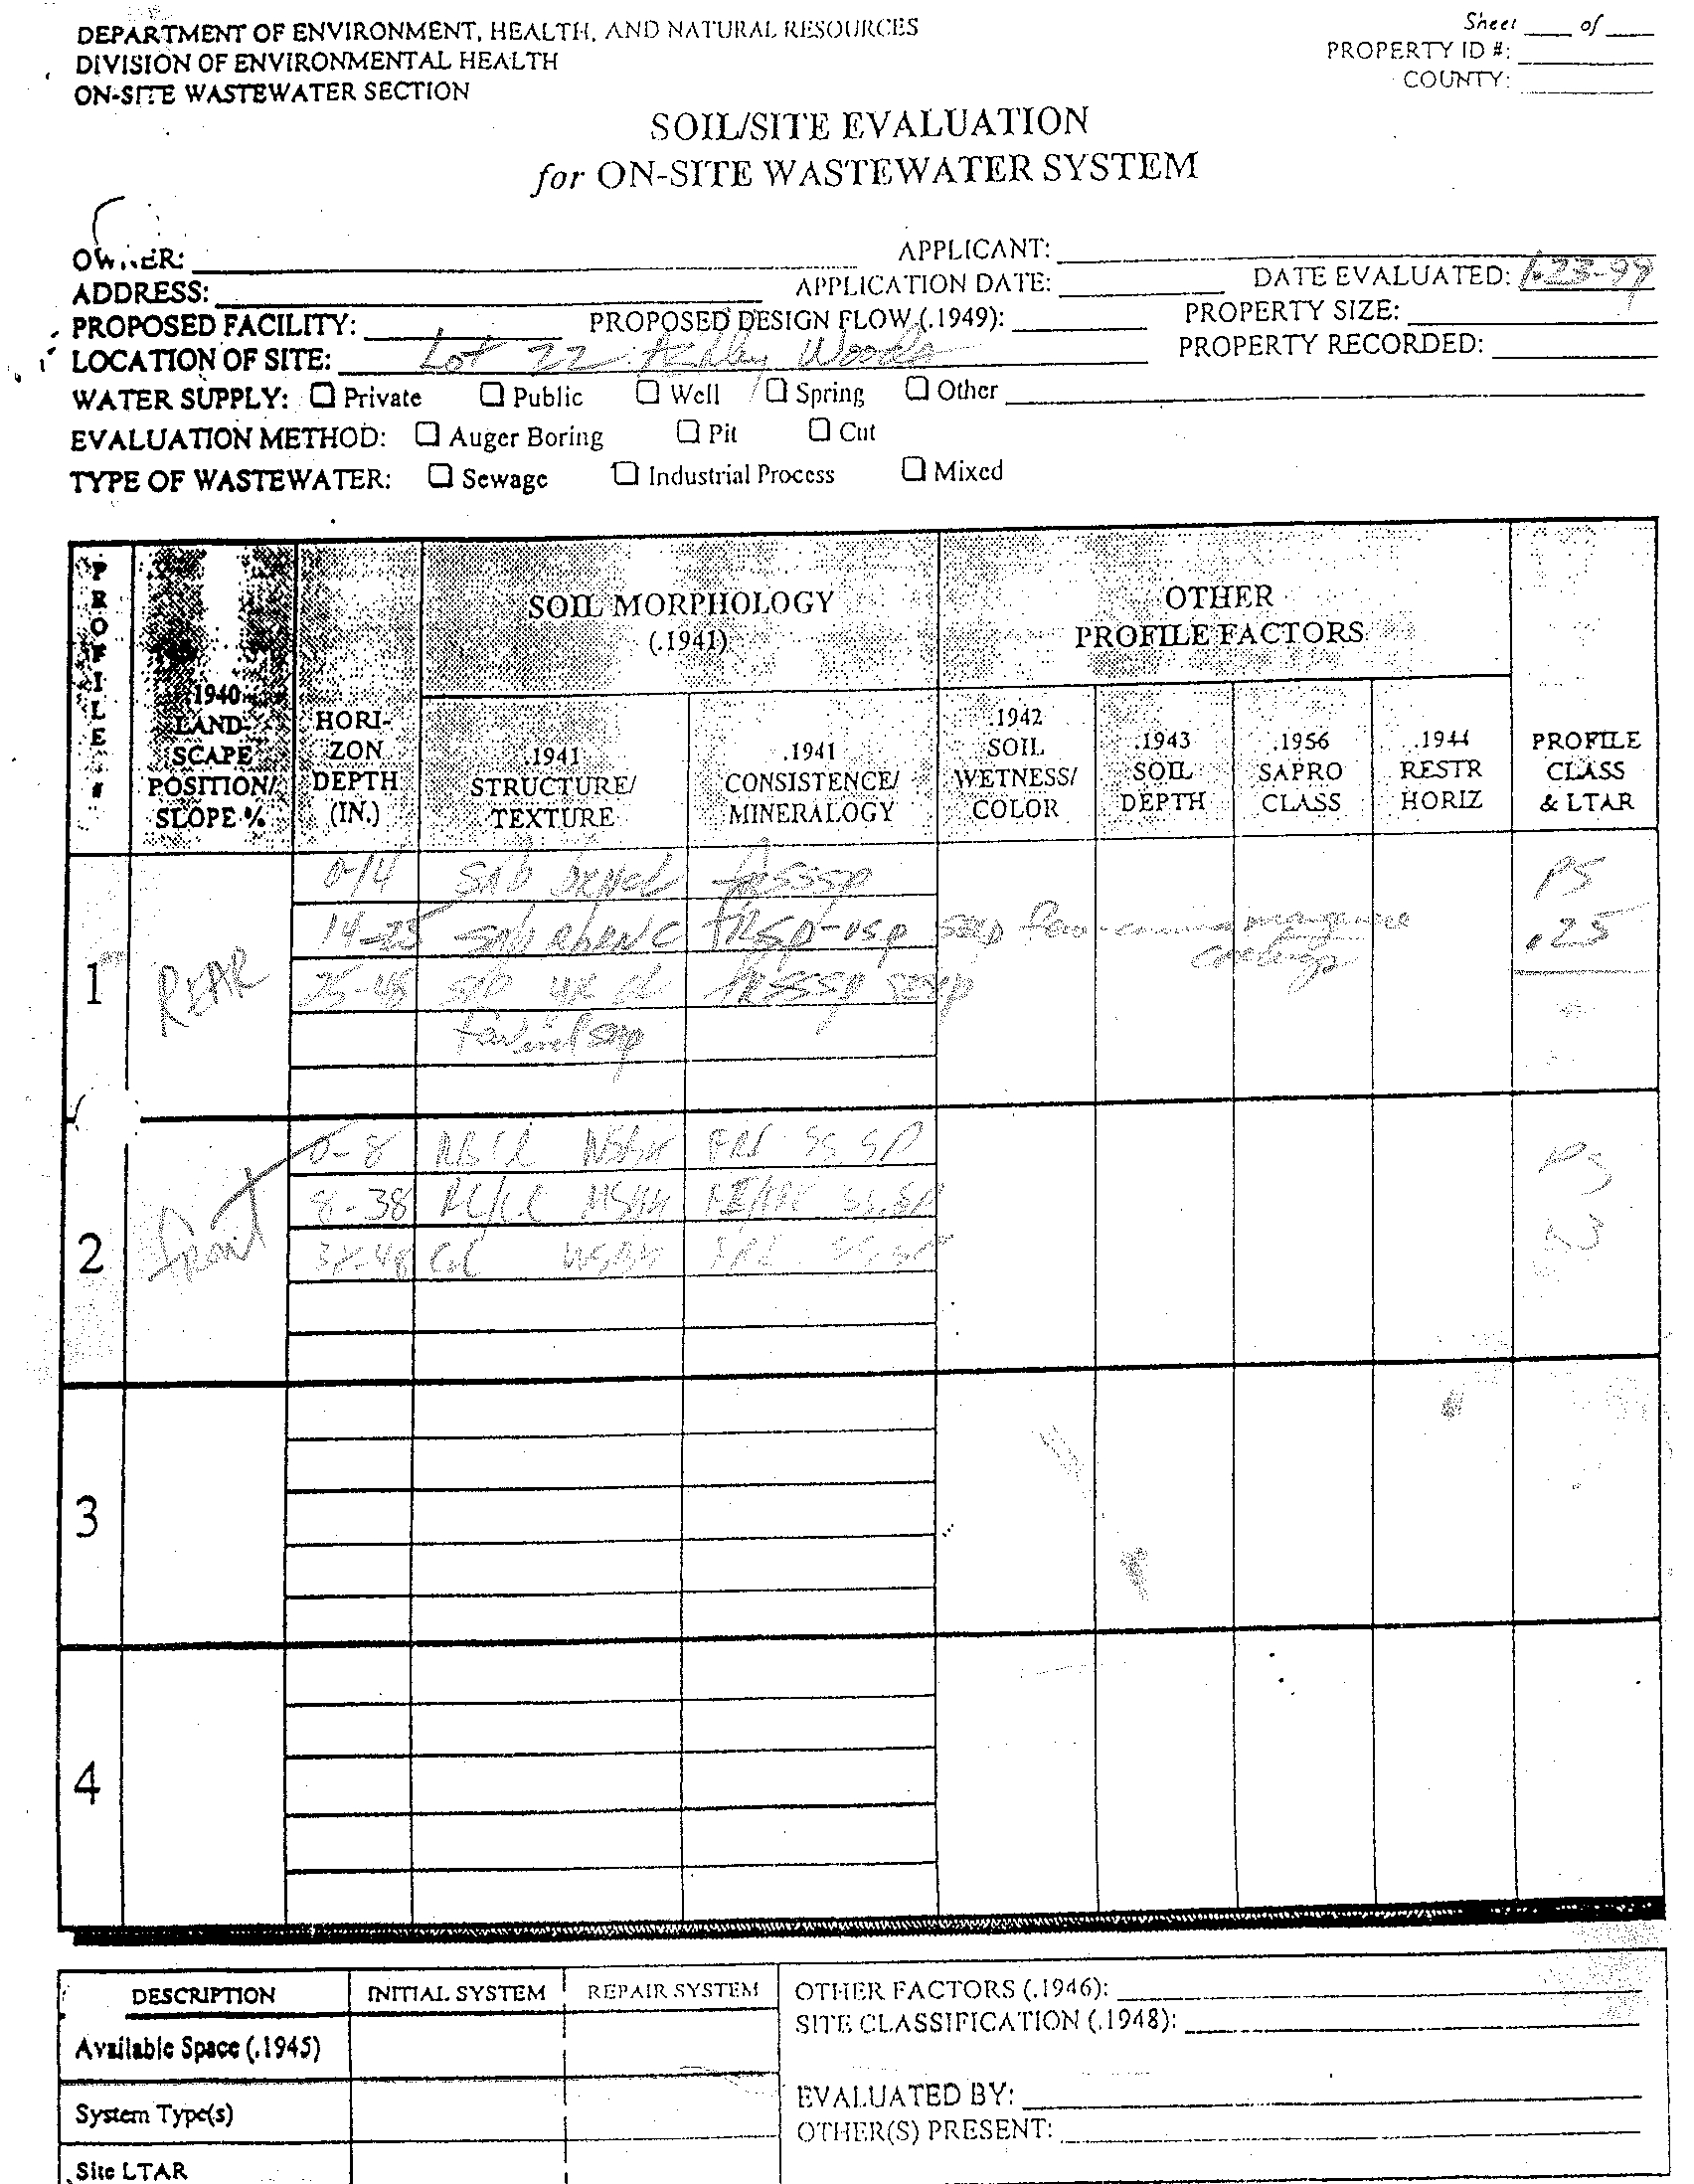 DEPARTMENT OF ENVIRONMENT, HEALTH, AND NATURAL RESOURCES
DIVISION OF ENVIRONMENTAL HEALTH
ON-SITE WASTEWATER SECTION
Sheet ____ of ____
PROPERTY ID #:
COUNTY:
SOIL/SITE EVALUATION
for ON-SITE WASTEWATER SYSTEM
OWNER:
APPLICANT:
ADDRESS:
APPLICATION DATE:
DATE EVALUATED: 1-23-99
PROPOSED FACILITY:
PROPOSED DESIGN FLOW (.1949):
PROPERTY SIZE:
LOCATION OF SITE: Lot 22 Ashley Woods
PROPERTY RECORDED:
WATER SUPPLY: ☐ Private ☐ Public ☐ Well ☐ Spring ☐ Other
EVALUATION METHOD: ☐ Auger Boring ☐ Pit ☐ Cut
TYPE OF WASTEWATER: ☐ Sewage ☐ Industrial Process ☐ Mixed
PROFILE #
.1940
LAND-
SCAPE
POSITION/
SLOPE %
HORI-
ZON
DEPTH
(IN.)
SOIL MORPHOLOGY
(.1941)
.1941
STRUCTURE/
TEXTURE
.1941
CONSISTENCE/
MINERALOGY
OTHER
PROFILE FACTORS
.1942
SOIL
WETNESS/
COLOR
.1943
SOIL
DEPTH
.1956
SAPRO
CLASS
.1944
RESTR
HORIZ
PROFILE
CLASS
& LTAR
1
REAR
0-14 SAB
PS
14-25
.25
25-48
2
front
0-8 FRI SS SP
PS
8-38
.3
38-48 CL
3
4
DESCRIPTION
INITIAL SYSTEM
REPAIR SYSTEM
Available Space (.1945)
System Type(s)
Site LTAR
OTHER FACTORS (.1946):
SITE CLASSIFICATION (.1948):
EVALUATED BY:
OTHER(S) PRESENT: